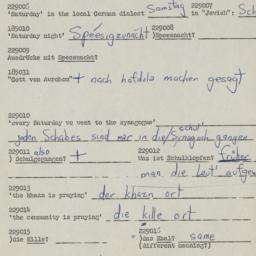 229006 229007
'Saturday' in the local German dialect Samstag in "Jewish": Sch
185010 229008
'Saturday night' Speisigzunacht )Speesnacht?
229009
Ausdrücke mit Speesnacht?
185031
"Gott vun Avrohom" + noch hafdole machen gesagt
229010
'every Saturday we went to the synagogue'
jeden Schabes sind mir in die Schul' Synagoch gegangen
229011 also 229012
) Schulegangen? + Was ist Schulklopfen? früher
man die Leut' aufge
229013
'the khazn is praying' der khazn ort
229014
'the community is praying' die kille ort
229015 229016
)die Kille? )das Kool? same
(different meaning?)